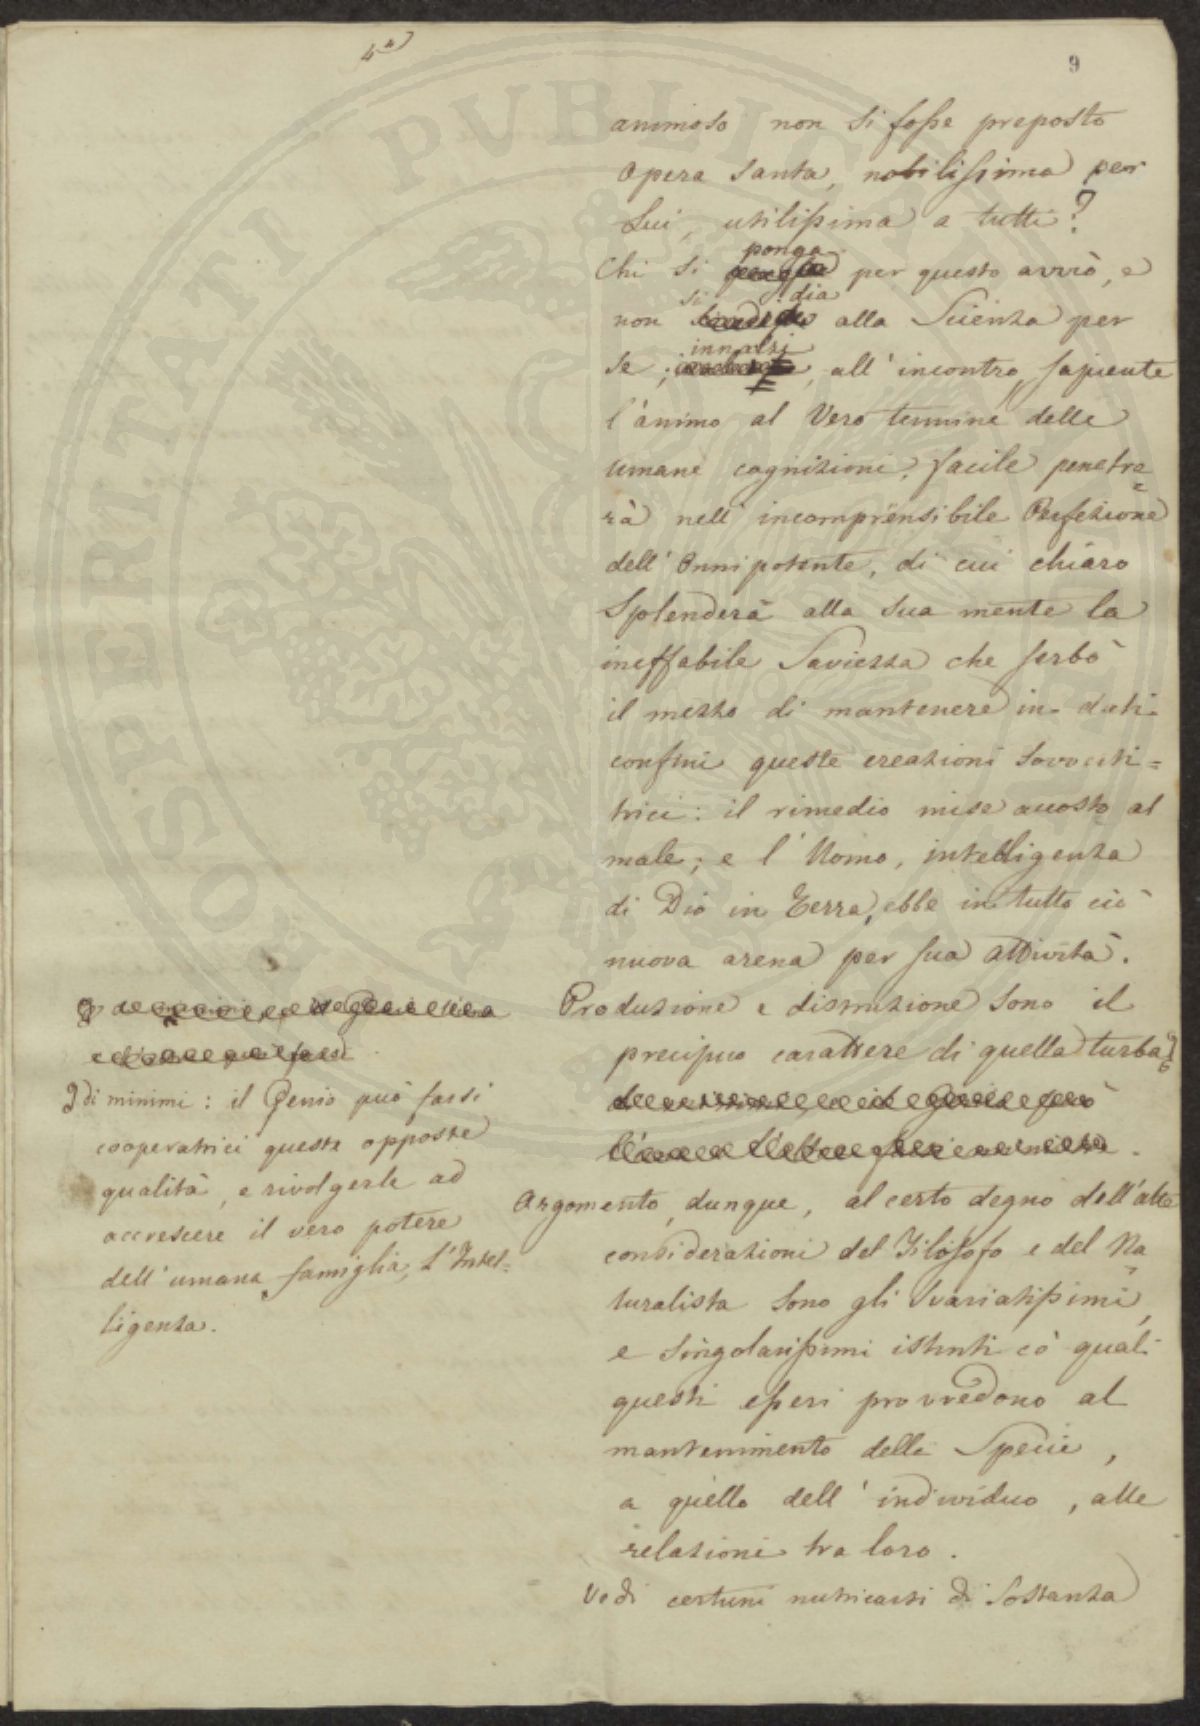 4ª
9
animoso non si fosse preposto
opera santa, nobilissima per
Lui, utilissima a tutti?
ponga
Chi si per questo avviò, e
si dia
non alla Scienza per
innalzi
se; , all'incontro, sapiente
l'animo al Vero termine delle
umane cognizioni, facile penetre=
rà nell'incomprensibile Perfezione
dell'Onnipotente, di cui chiaro
Splenderà alla sua mente la
ineffabile Saviezza che serbò
il mezzo di mantenere in dati
confini queste creazioni
trici: il rimedio mise accosto al
male; e l'Uomo, intelligenza
di Dio in Terra, ebbe in tutto ciò
nuova arena per sua attività.
Produzione e distruzione sono il
precipuo carattere di quella turba
Argomento, dunque, al certo degno dell'alte
considerazioni del Filosofo e del Na=
turalista sono gli svariatissimi,
e singolarissimi istinti co' quali
questi esseri provvedono al
mantenimento della Specie,
a quello dell'individuo, alle
relazioni tra loro.
Vedi certuni nutricarsi di Sostanza
di minimi: il Genio può farsi
cooperatrici queste opposte
qualità, e rivolgerle ad
accrescere il vero potere
dell'umana famiglia, l'Intel=
ligenza.
PROSPERITATI PVBLICAE